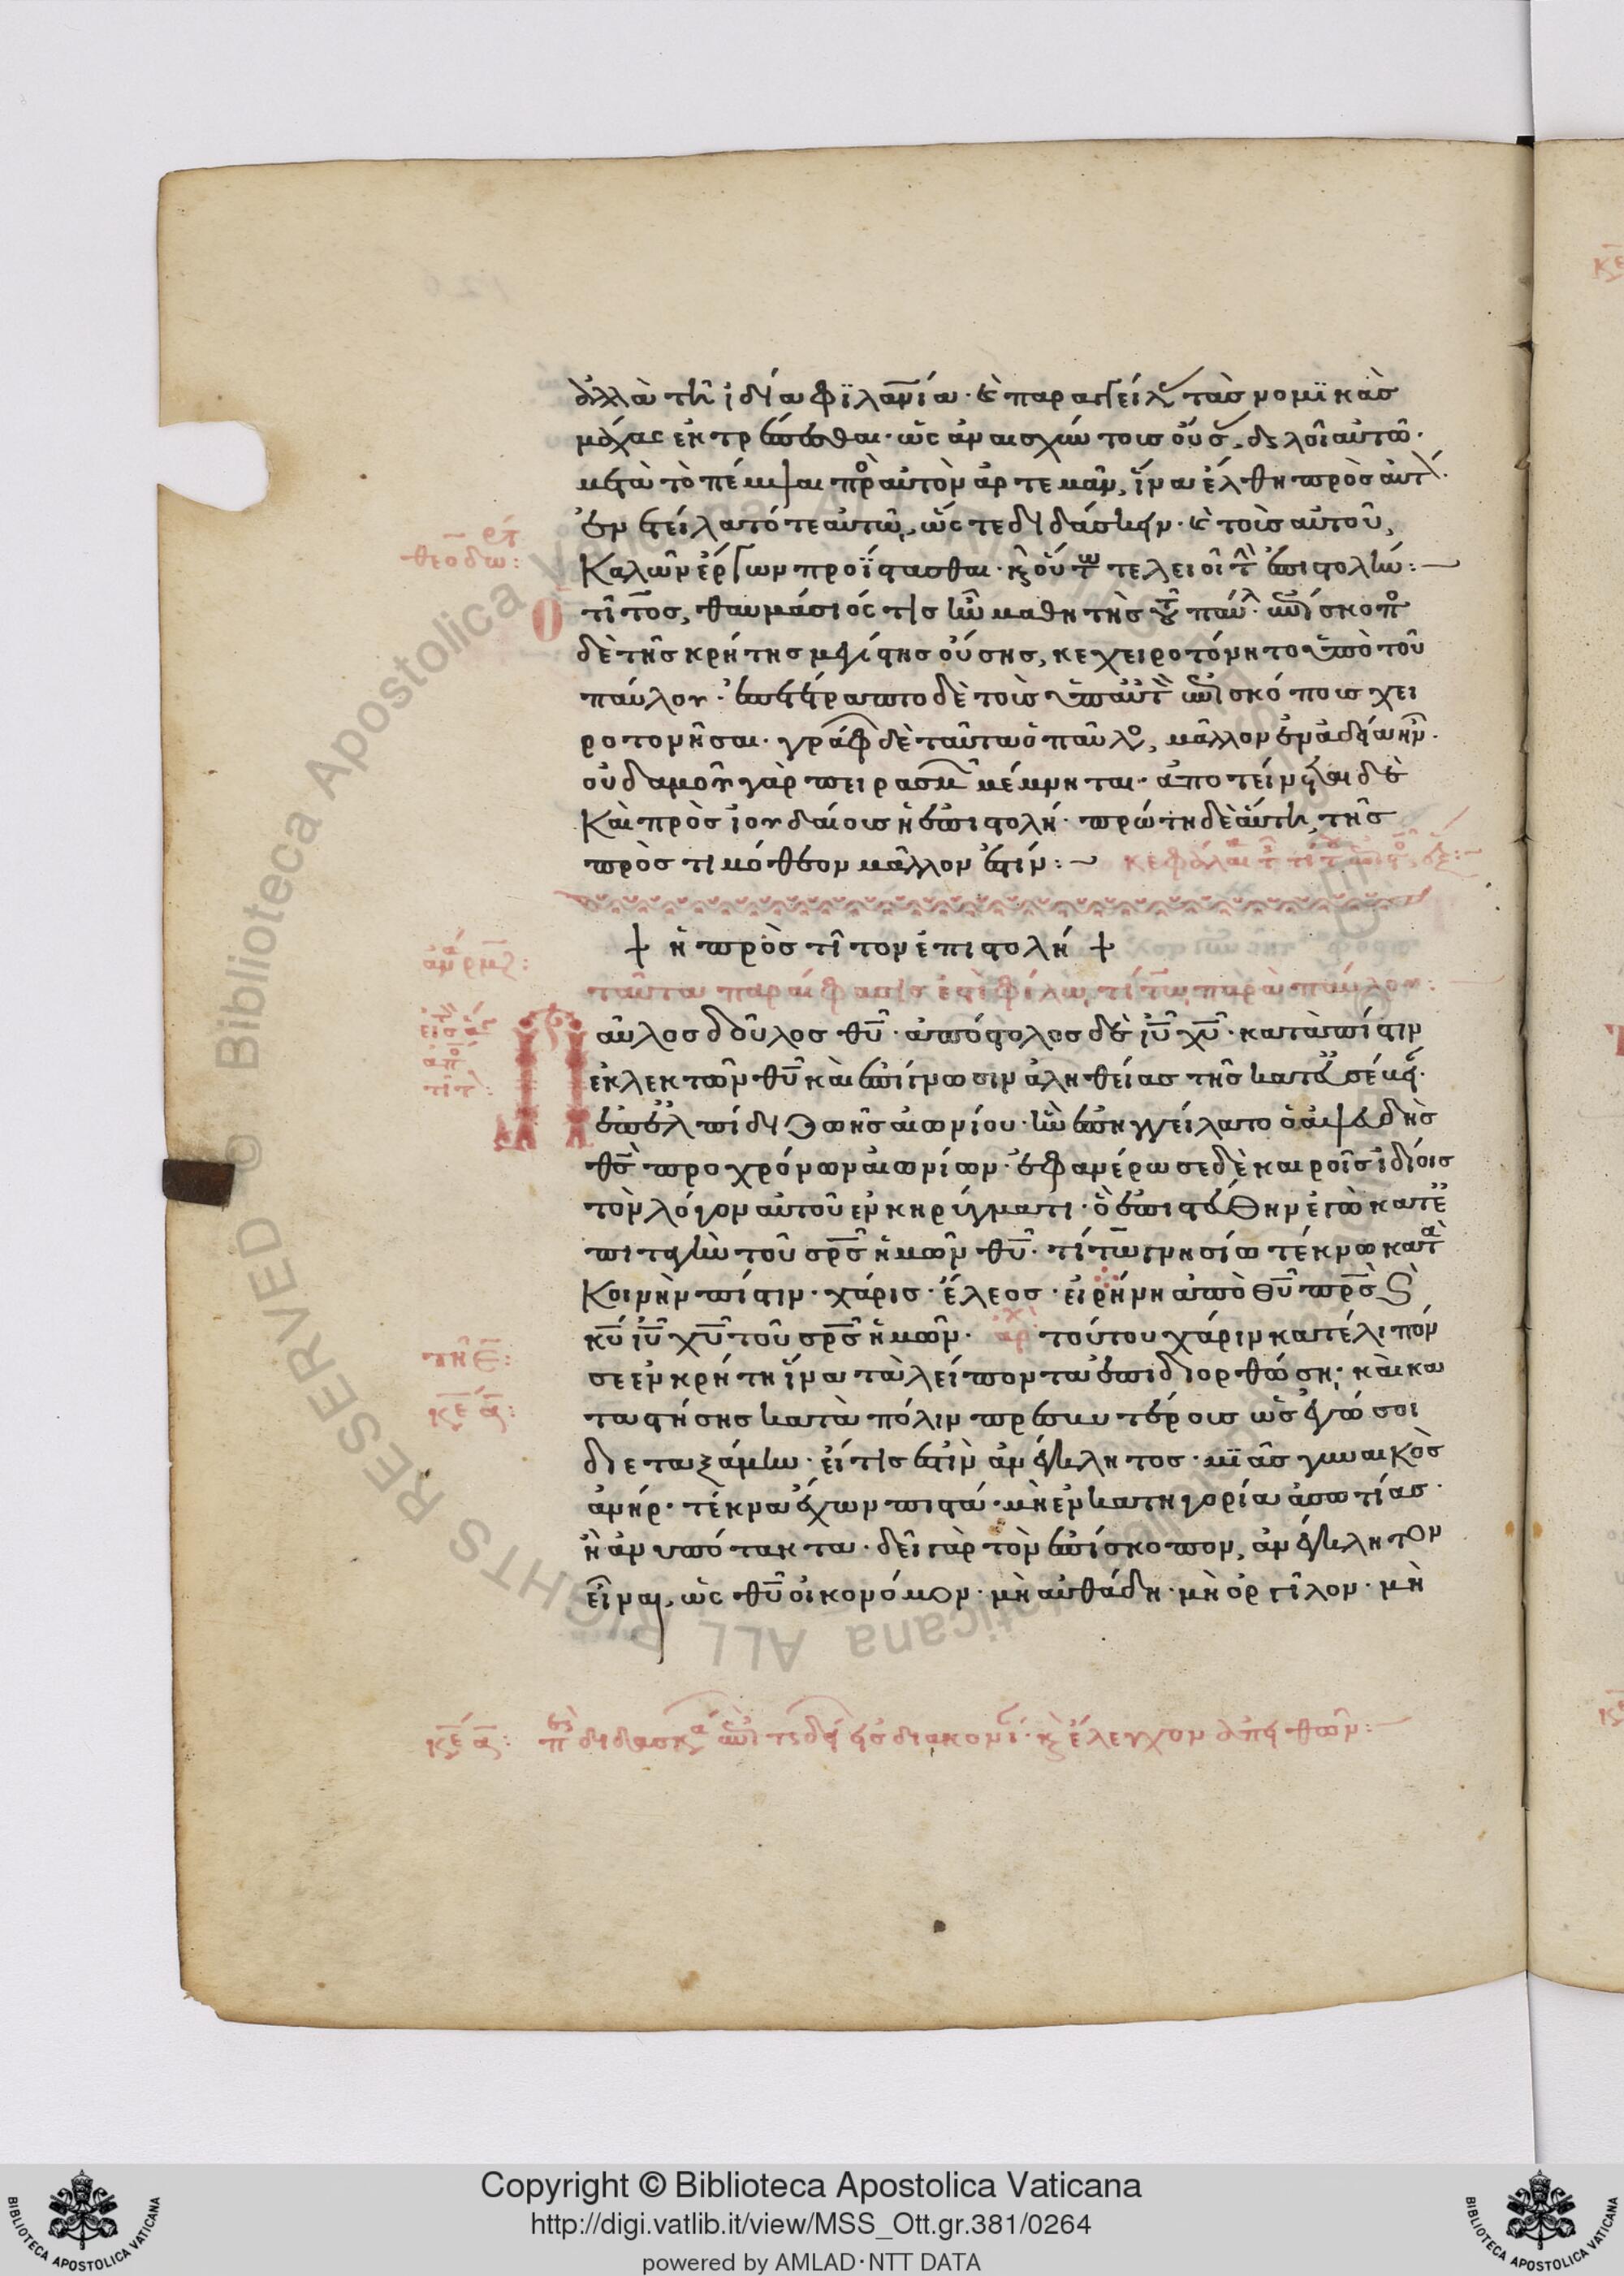 ἀλλὰ τῆ ἰδία φϊλανία· καὶ παραγγείλας τὰσ νομϊκὰσ
μάχας ἐκτρέπεσθαι· ὡς ἀναισχύντοισ οὔσας, δηλοῖ αὐτῶ·
μετὰ τὸ πέμψαι πρὸ αὐτὸν ἀρτεμᾶν, ἵνα ἔλθη πρὸσ αὐτὸν·
ἐνετείλατό τε αὐτῶ, ὥς τε διδάσκειν· καὶ τοὺσ αὐτοῦ,
καλῶν ἔργων προΐστασθαι· καὶ οὕτω τελειοῖ τὴν ἐπιστολήν:
θεοδωρήτ:
Ο τίτος, θαυμάσιός τις ἦν μαθητὴσ τοῦ παύλου· ἐπίσκοπος
δὲ τῆσ κρήτησ μεγίστησ οὔσησ, κεχειροτόνητο ὑπὸ τοῦ
παύλου· ἐπετέτραπτο δὲ τοὺσ ὑπ αὐτὸν ἐπισκόπουσ χει
ροτονῆσαι· γράφει δὲ ταῦτα ὁ παῦλος, μᾶλλον ἐν ἀδεία ἦν·
οὐδαμοῦ γὰρ πειρασμοῦ μέμνηται· ἀποτείνεται δὲ
καὶ πρὸσ ἰουδαίουσ ἡ ἐπιστολή· πρώτη δὲ αὕτη, τῆσ
πρὸσ τιμόθεον μᾶλλον ἐστίν:
+ ἡ πρὸσ τίτον ἐπιστολή +
ταῦτα παραίφασισ ἐστὶ φίλω, τίτω, παρὰ παύλου:
Παῦλοσ δοῦλοσ θυ· ἀπόστολοσ δὲ ιυ χυ· κατὰ πίστιν
ἐκλεκτῶν θυ καὶ ἐπίγνωσιν ἀληθείασ τῆσ κατ εὐσέβει·
ἐπ ἐλπίδι ζωῆσ αἰωνίου· ἣν ἐπηγγείλατο ὁ ἀψευδὴσ
θς πρὸ χρόνων αἰωνίων· ἐφανέρωσε δὲ καιροῖσ ἰδίοισ
τὸν λόγον αὐτοῦ ἐν κηρύγματι· ὃ ἐπιστεύθην ἐγὼ κατ ἐ
πιταγὴν τοῦ σρς ἡμῶν θυ· τίτω γνησίω τέκνω κατὰ
κοινὴν πίστιν· χάρισ· ἔλεοσ· εἰρήνη ἀπὸ θυ πρς καὶ
κυ ιυ χυ τοῦ σρς ἡμῶν· ἀρχ τούτου χάριν κατέλιπόν
σε ἐν κρήτη ἵνα τὰ λείποντα ἐπιδιορθώση· καὶ κα
ταστήσησ κατὰ πόλιν πρεσβυτέρουσ ὡσ ἐγώ σοι
διεταξάμην· εἴ τίσ ἐστὶν ἀνέγκλητοσ· μϊᾶσ γυναικὸσ
ἀνήρ· τέκνα ἔχων πιστά· μὴ ἐν κατηγορία ἀσωτίασ·
ἢ ἀνυπότακτα· δεῖ γὰρ τὸν ἐπίσκοπον, ἀνέγκλητον
εἶναι, ὡς θυ οἰκονόμον· μὴ αὐθάδη· μὴ ὀργίλον· μὴ
κε α:
Copyright © Biblioteca Apostolica Vaticana
http://digi.vatlib.it/view/MSS_Ott.gr.381/0264
powered by AMLAD·NTT DATA